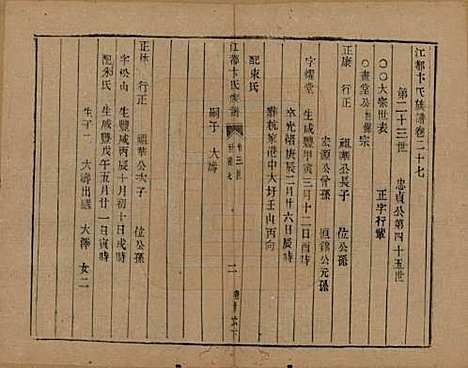 江都卞氏族譜卷二十七
第二十三世 忠貞公第四十五世
○○大宗世表 正字行輩
○書堂公 宗
正康 行正 祖華公長子 位公孫
宏源公曾孫 恒錦公元孫
字耀堂 生咸豐甲寅三月十二日酉時
卒光緒庚辰二月廿六日辰時
葬 家港中大圩壬山丙向
配朱氏
嗣子 大濤
江都卞氏族譜 二
正林 行正 祖華公次子 位公孫
字松山 生咸豐丙辰十月初十日戌時
配朱氏 生咸豐戊午五月廿一日寅時
生子二 大濤出嗣 大濤 女二